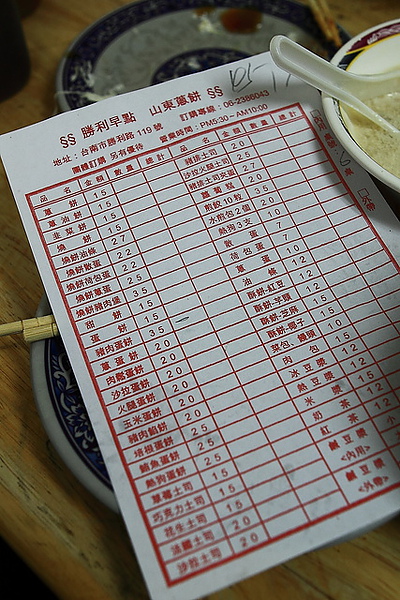 §§ 勝利早點 山東蔥餅 §§
地址:台南市勝利路119號 訂購專線:06-2386043
團體訂購 另有優待 營業時間:PM5:30~AM10:00
品名 金額 數量 總計 品名 金額 數量 總計
蔥餅 15 豬排土司 20
蔥油餅 15 沙拉火腿土司 25
韭菜餅 15 豬排土司夾蛋 27
燒餅 15 蘿蔔糕 20
燒餅油條 27 煎餃10粒 35
燒餅散蛋 22 水煎包2個 20
燒餅荷包蛋 22 熱狗3支 10
燒餅蔥蛋 25 散蛋 7
燒餅豬肉堡 35 荷包蛋 7
甜餅 15 蔥蛋 10
蛋餅 15 油條 12
豬肉蛋餅 35 酥餅-紅豆 12
蔥蛋餅 20 酥餅-芋頭 12
肉鬆蛋餅 20 酥餅-芝麻 15
沙拉蛋餅 20 酥餅-椰子 15
火腿蛋餅 20 菜包、饅頭 10
玉米蛋餅 20 肉包 15
豬肉餡餅 20 冰豆漿 12
培根蛋餅 25 熱豆漿 12
鮪魚蛋餅 25 米漿 15
熱狗蛋餅 25 奶茶 12
草莓土司 15 紅茶 12
巧克力土司 15 鹹豆漿
<內用>
花生土司 15
法國土司 20 鹹豆漿
<外帶>
沙拉土司 20
□外帶